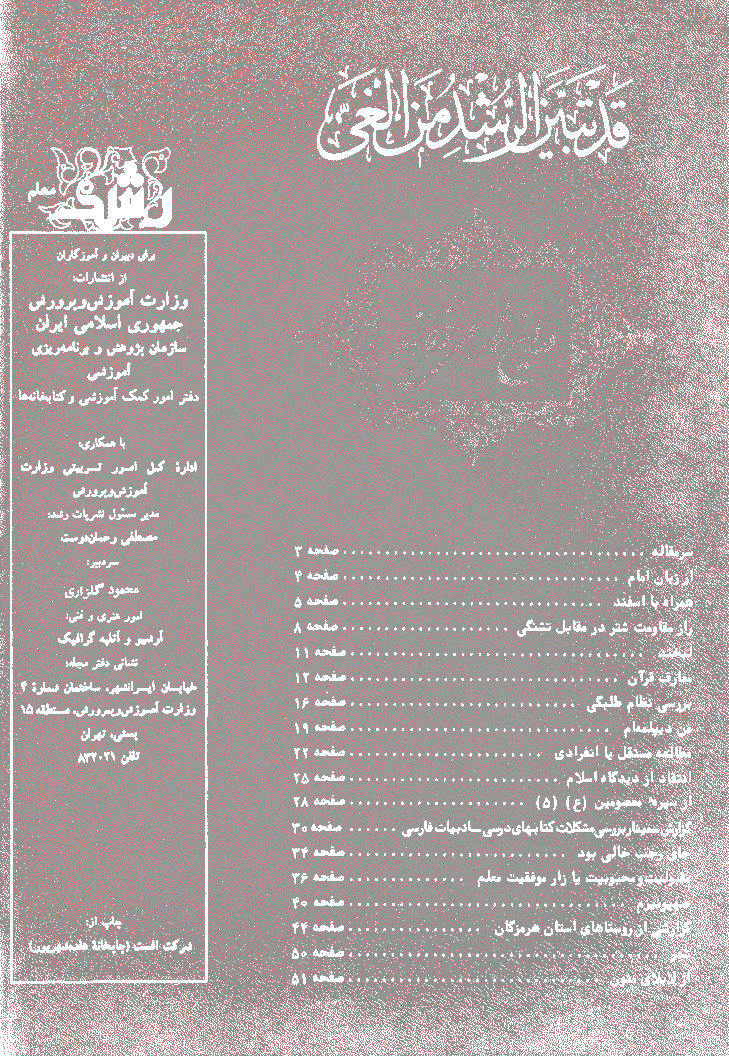 قد تبین الرشد من الغی
رشد معلم
برای دبیران و آموزگاران
از انتشارات:
وزارت آموزش‌وپرورش
جمهوری اسلامی ایران
سازمان پژوهش و برنامه‌ریزی
آموزشی
دفتر امور کمک آموزشی و کتابخانه‌ها
با همکاری:
ادارهٔ کل امور تربیتی وزارت
آموزش‌وپرورش
مدیر مسئول نشریات رشد:
مصطفی رحماندوست
سردبیر:
محمود گلزاری
امور هنری و فنی:
آردیو و آتلیه گرافیک
نشانی دفتر مجله:
خیابان ایرانشهر، ساختمان شمارهٔ ۴
وزارت آموزش‌وپرورش، منطقه ۱۵
پستی، تهران
تلفن ۸۳۲۰۲۱
چاپ از:
شرکت افست (چاپخانهٔ هفده شهریور)
سرمقاله صفحه ۳
از زبان امام صفحه ۴
همراه با اسفند صفحه ۵
راز مقاومت شتر در مقابل تشنگی صفحه ۸
اسفند صفحه ۱۱
معارف قرآن صفحه ۱۲
بررسی نظام طلبگی صفحه ۱۶
من دیپلمه‌ام صفحه ۱۹
مطالعه مستقل یا انفرادی صفحه ۲۲
انتقاد از دیدگاه اسلام صفحه ۲۵
از سیره معصومین (ع) (۵) صفحه ۲۸
گزارش سمینار بررسی مشکلات کتابهای درسی ـ ادبیات فارسی صفحه ۳۰
جای رجب خالی بود صفحه ۳۴
مقبولیت و محبوبیت یا راز موفقیت معلم صفحه ۳۶
صفحه ۴۰
گزارشی از روستاهای استان هرمزگان صفحه ۴۴
صفحه ۵۰
صفحه ۵۱